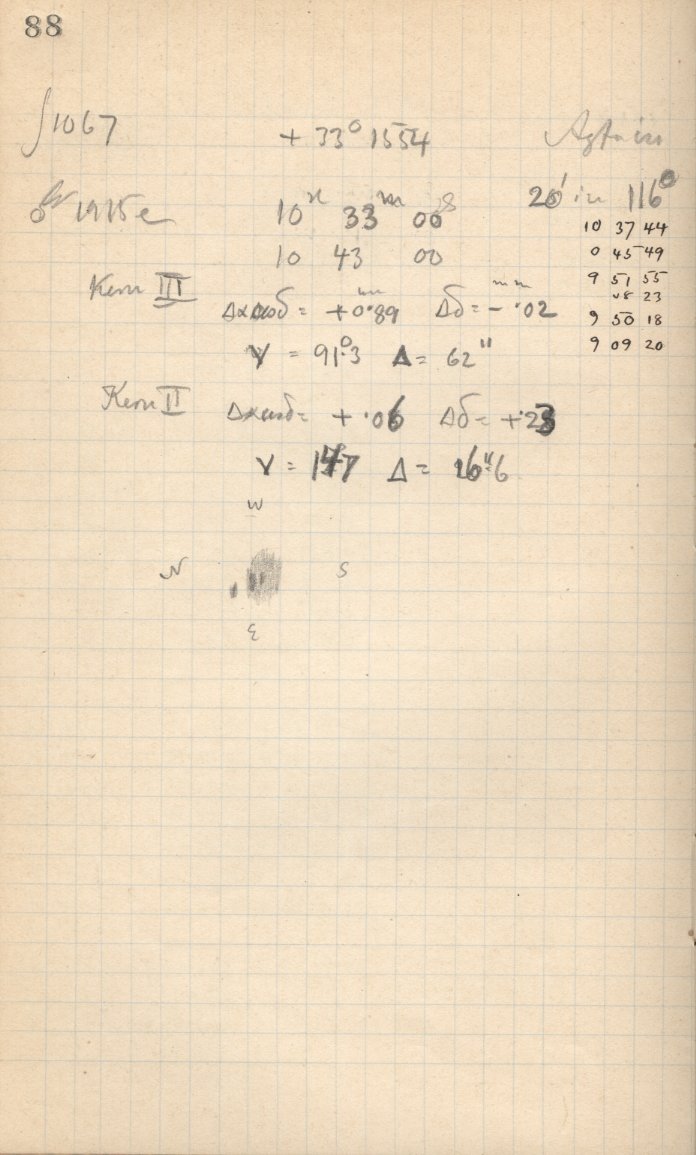 88
∫1067 + 33° 1554
20' in 116°
10h 33m 00s
10 43 00
10 37 44
0 45 49
9 51 55
08 23
9 50 18
9 09 20
Kern III Δα cos δ = +0.89 mm Δδ = - .02 mm
γ = 91°.3 Δ = 62"
Kern II Δα cos δ = + .06 Δδ = + .23
γ = 147 Δ = 16".6
W
N S
E